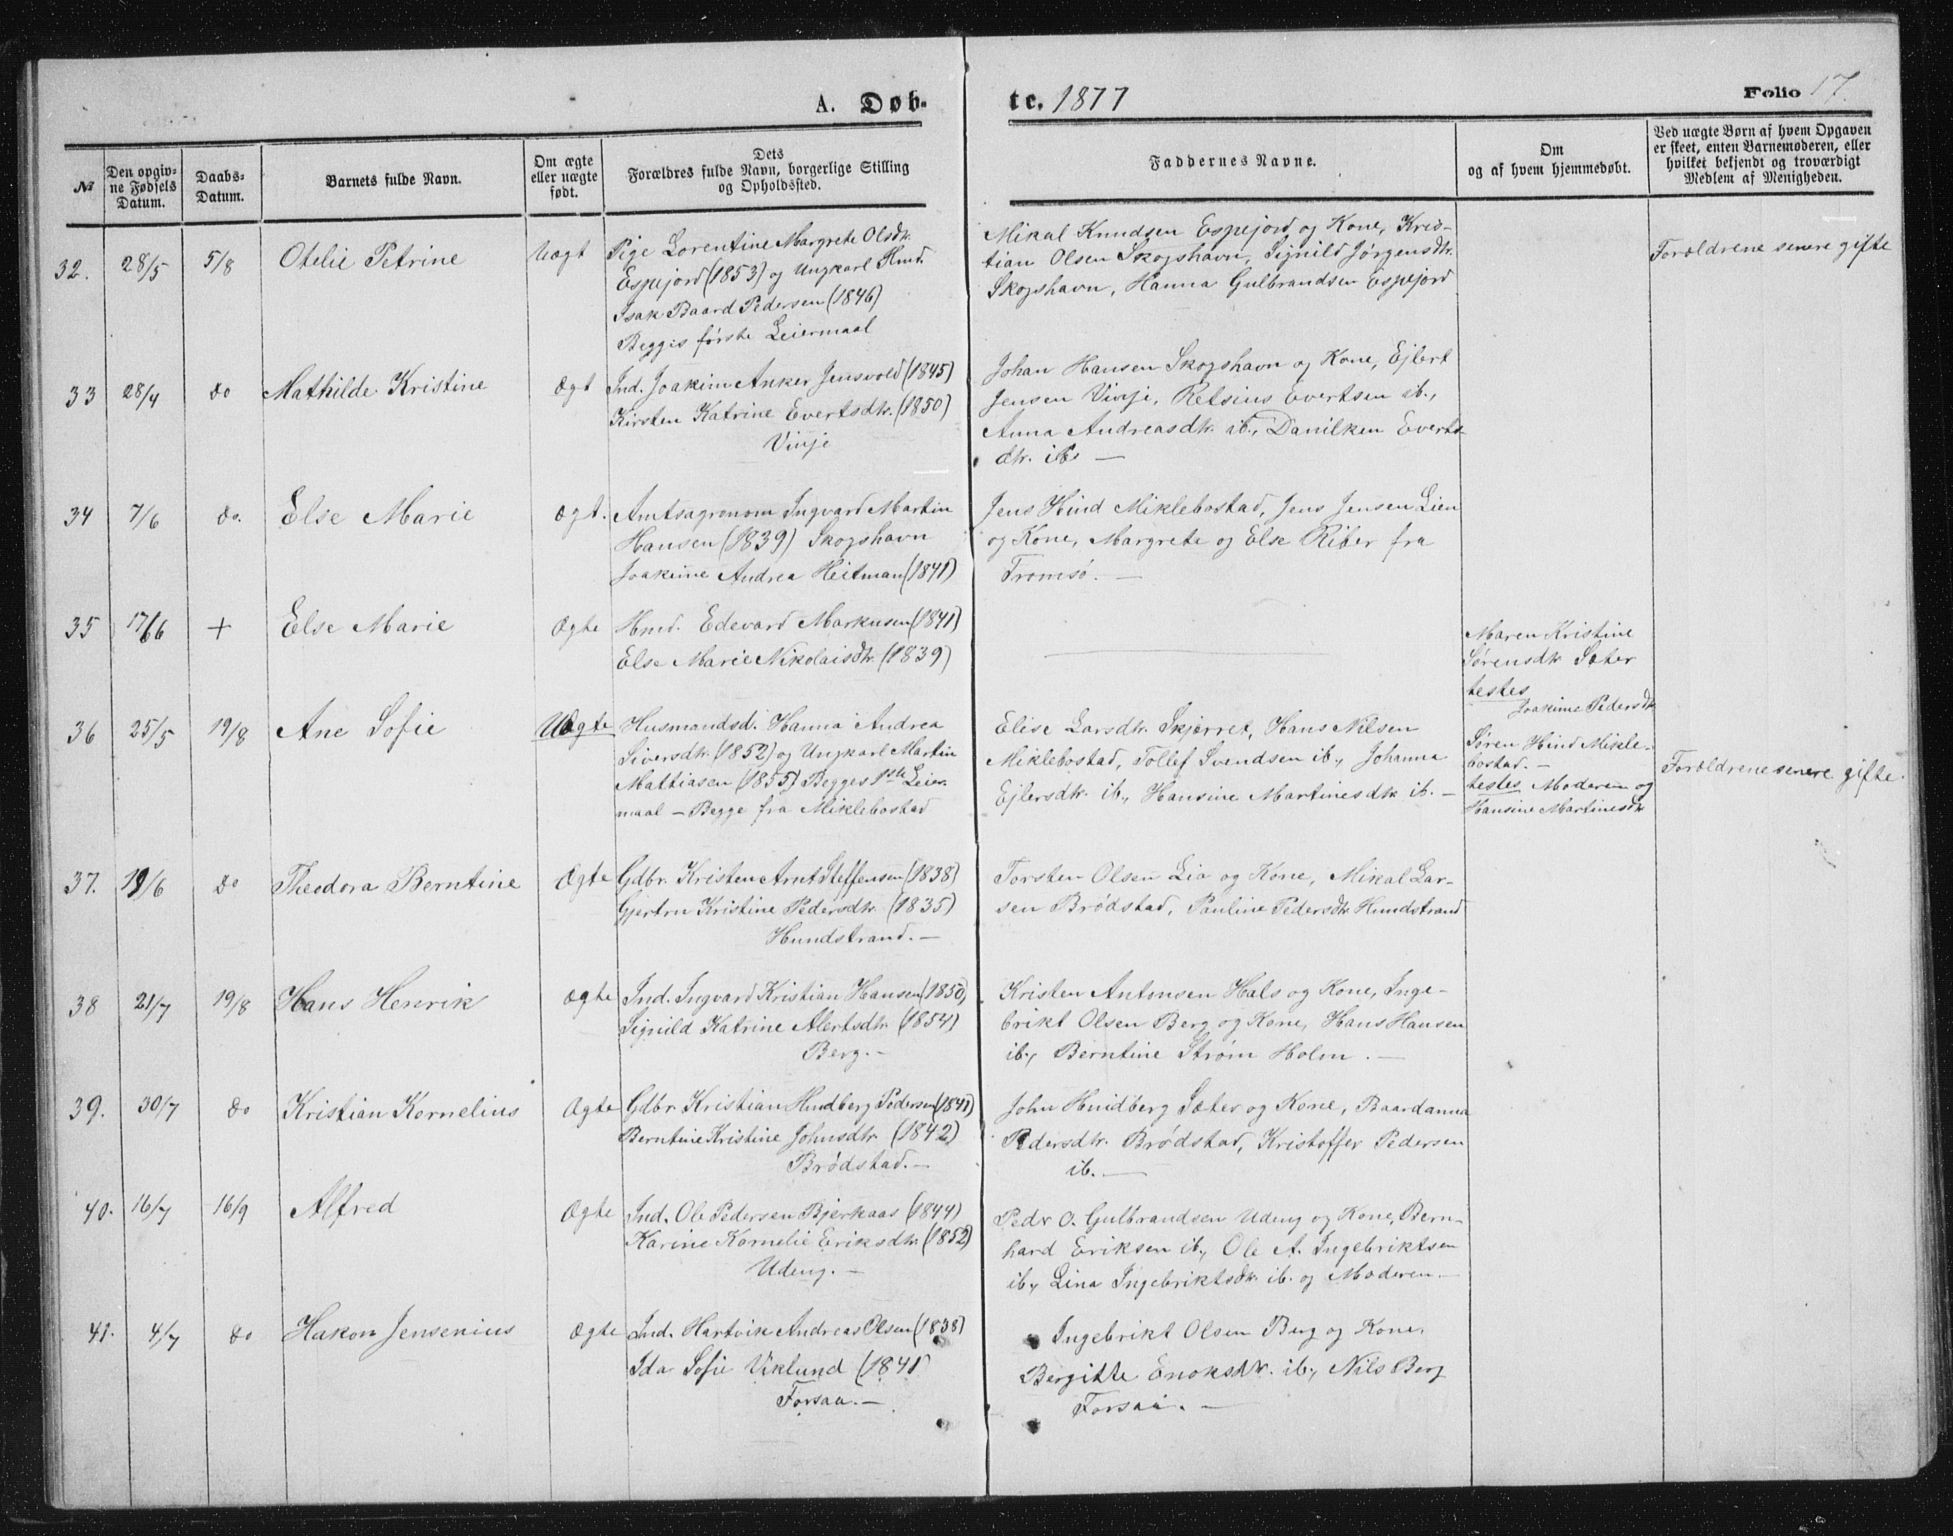 A. Døb-
te. 1877
Folio 17.
№
Den opgiv-
ne Fødsels
Datum.
Daabs-
Datum.
Barnets fulde Navn.
Om ægte
eller uægte
født.
Dets
Forældres fulde Navn, borgerlige Stilling
og Opholdssted.
Faddernes Navne.
Om
og af hvem hjemmedøbt.
Ved uægte Børn af hvem Opgaven
er skeet, enten Barnemoderen, eller
hvilket bekjendt og troværdigt
Medlem af Menigheden.
32. 28/5 5/8 Otelie Petrine Uægt
Pige Lorentine Margrete Olsdtr.
Espejord (1853) og Ungkarl Hmd.
Isak Baard Pedersen (1846)
Begges første Leiermaal
Mikal Knudsen Espejord og Kone, Kris-
tian Olsen Skogshavn, Signild Jørgensdtr.
Skogshavn, Hanna Gulbrandsen Espejord
Forældrene senere gifte
33 28/4 do Mathilde Kristine Ægt
Ind. Joakim Anker Jensvold (1845)
Kirsten Katrine Evertsdtr. (1850)
Vinje
Johan Hansen Skogshavn og Kone, Ejlert
Jensen Vinje, Retsius Evertsen ib.,
Anna Andreasdtr. ib., Danilken Everts-
dtr. ib. —
34 7/6 do. Else Marie Ægt.
Amtsagronom Ingvard Martin
Hansen (1839) Skogshavn
Joakime Andrea Heitman (1841)
Jens Hind Miklebostad, Jens Jensen Lien
og Kone, Margrete og Else Riber fra
Tromsø. —
35 17/6 + Else Marie Ægte
Hmd. Edevard Markusen (1841)
Else Marie Nikolaisdtr. (1839)
Maren Kristine
Sørensdtr Sæter
testes
Joakime Pedersdtr
36 25/5 19/8 Ane Sofie UÆgte
Husmandsd. Hanna Andrea
Siversdtr. (1852) og Ungkarl Martin
Mattiasen (1855) Begges 1ste Leier-
maal — Begge fra Miklebostad
Elise Larsdtr. Skjærret, Hans Nilsen
Miklebostad, Tollef Svendsen ib., Johanna
Ejlersdtr. ib., Hansine Martinesdtr ib. —
Søren Hind Mikle-
bostad. —
testes Moderen og
Hansine Martinesdtr
Forældrene senere gifte.
37. 19/6 do Theodora Berntine Ægte
Gdbr. Kristen Arnt Steffensen (1838)
Gjertru Kristine Pedersdtr. (1835)
Hundstrand. —
Torsten Olsen Lia og Kone, Mikal Lar-
sen Brødstad, Pauline Pedersdtr. Hundstrand
38 21/7 19/8 Hans Henrik Ægte
Ind. Ingvard Kristian Hansen (1850)
Signild Katrine Alertsdtr. (1854)
Berg. —
Kristen Antonsen Hals og Kone, Inge-
brikt Olsen Berg og Kone, Hans Hansen
ib., Berntine Strøm Holm. —
39. 30/7 do Kristian Kornelius Ægte
Gdbr Kristian Hindberg Pedersen (1841)
Berntine Kristine Johnsdtr. (1842)
Brødstad. —
John Hindberg Sæter og Kone, Baardanna
Pedersdtr. Brødstad, Kristoffer Pedersen
ib. —
40. 16/7 16/9 Alfred Ægte
Ind. Ole Pedersen Bjerkaas (1844)
Karine Kornelie Eriksdtr. (1852)
Udeng. —
Peder O. Gulbrandsen Udeng og Kone, Bern-
hard Eriksen ib., Ole A. Ingebriktsen
ib., Lina Ingebriktsdtr. ib. og Moderen. —
41. 4/7 do Hakon Jensenius Ægte
Ind. Hartvik Andreas Olsen (1838)
Ida Sofie Viklund (1841
Forsaa. —
Ingebrikt Olsen Berg og Kone,
Bergitte Enoksdtr. ib., Nils Berg
Forsaa. —